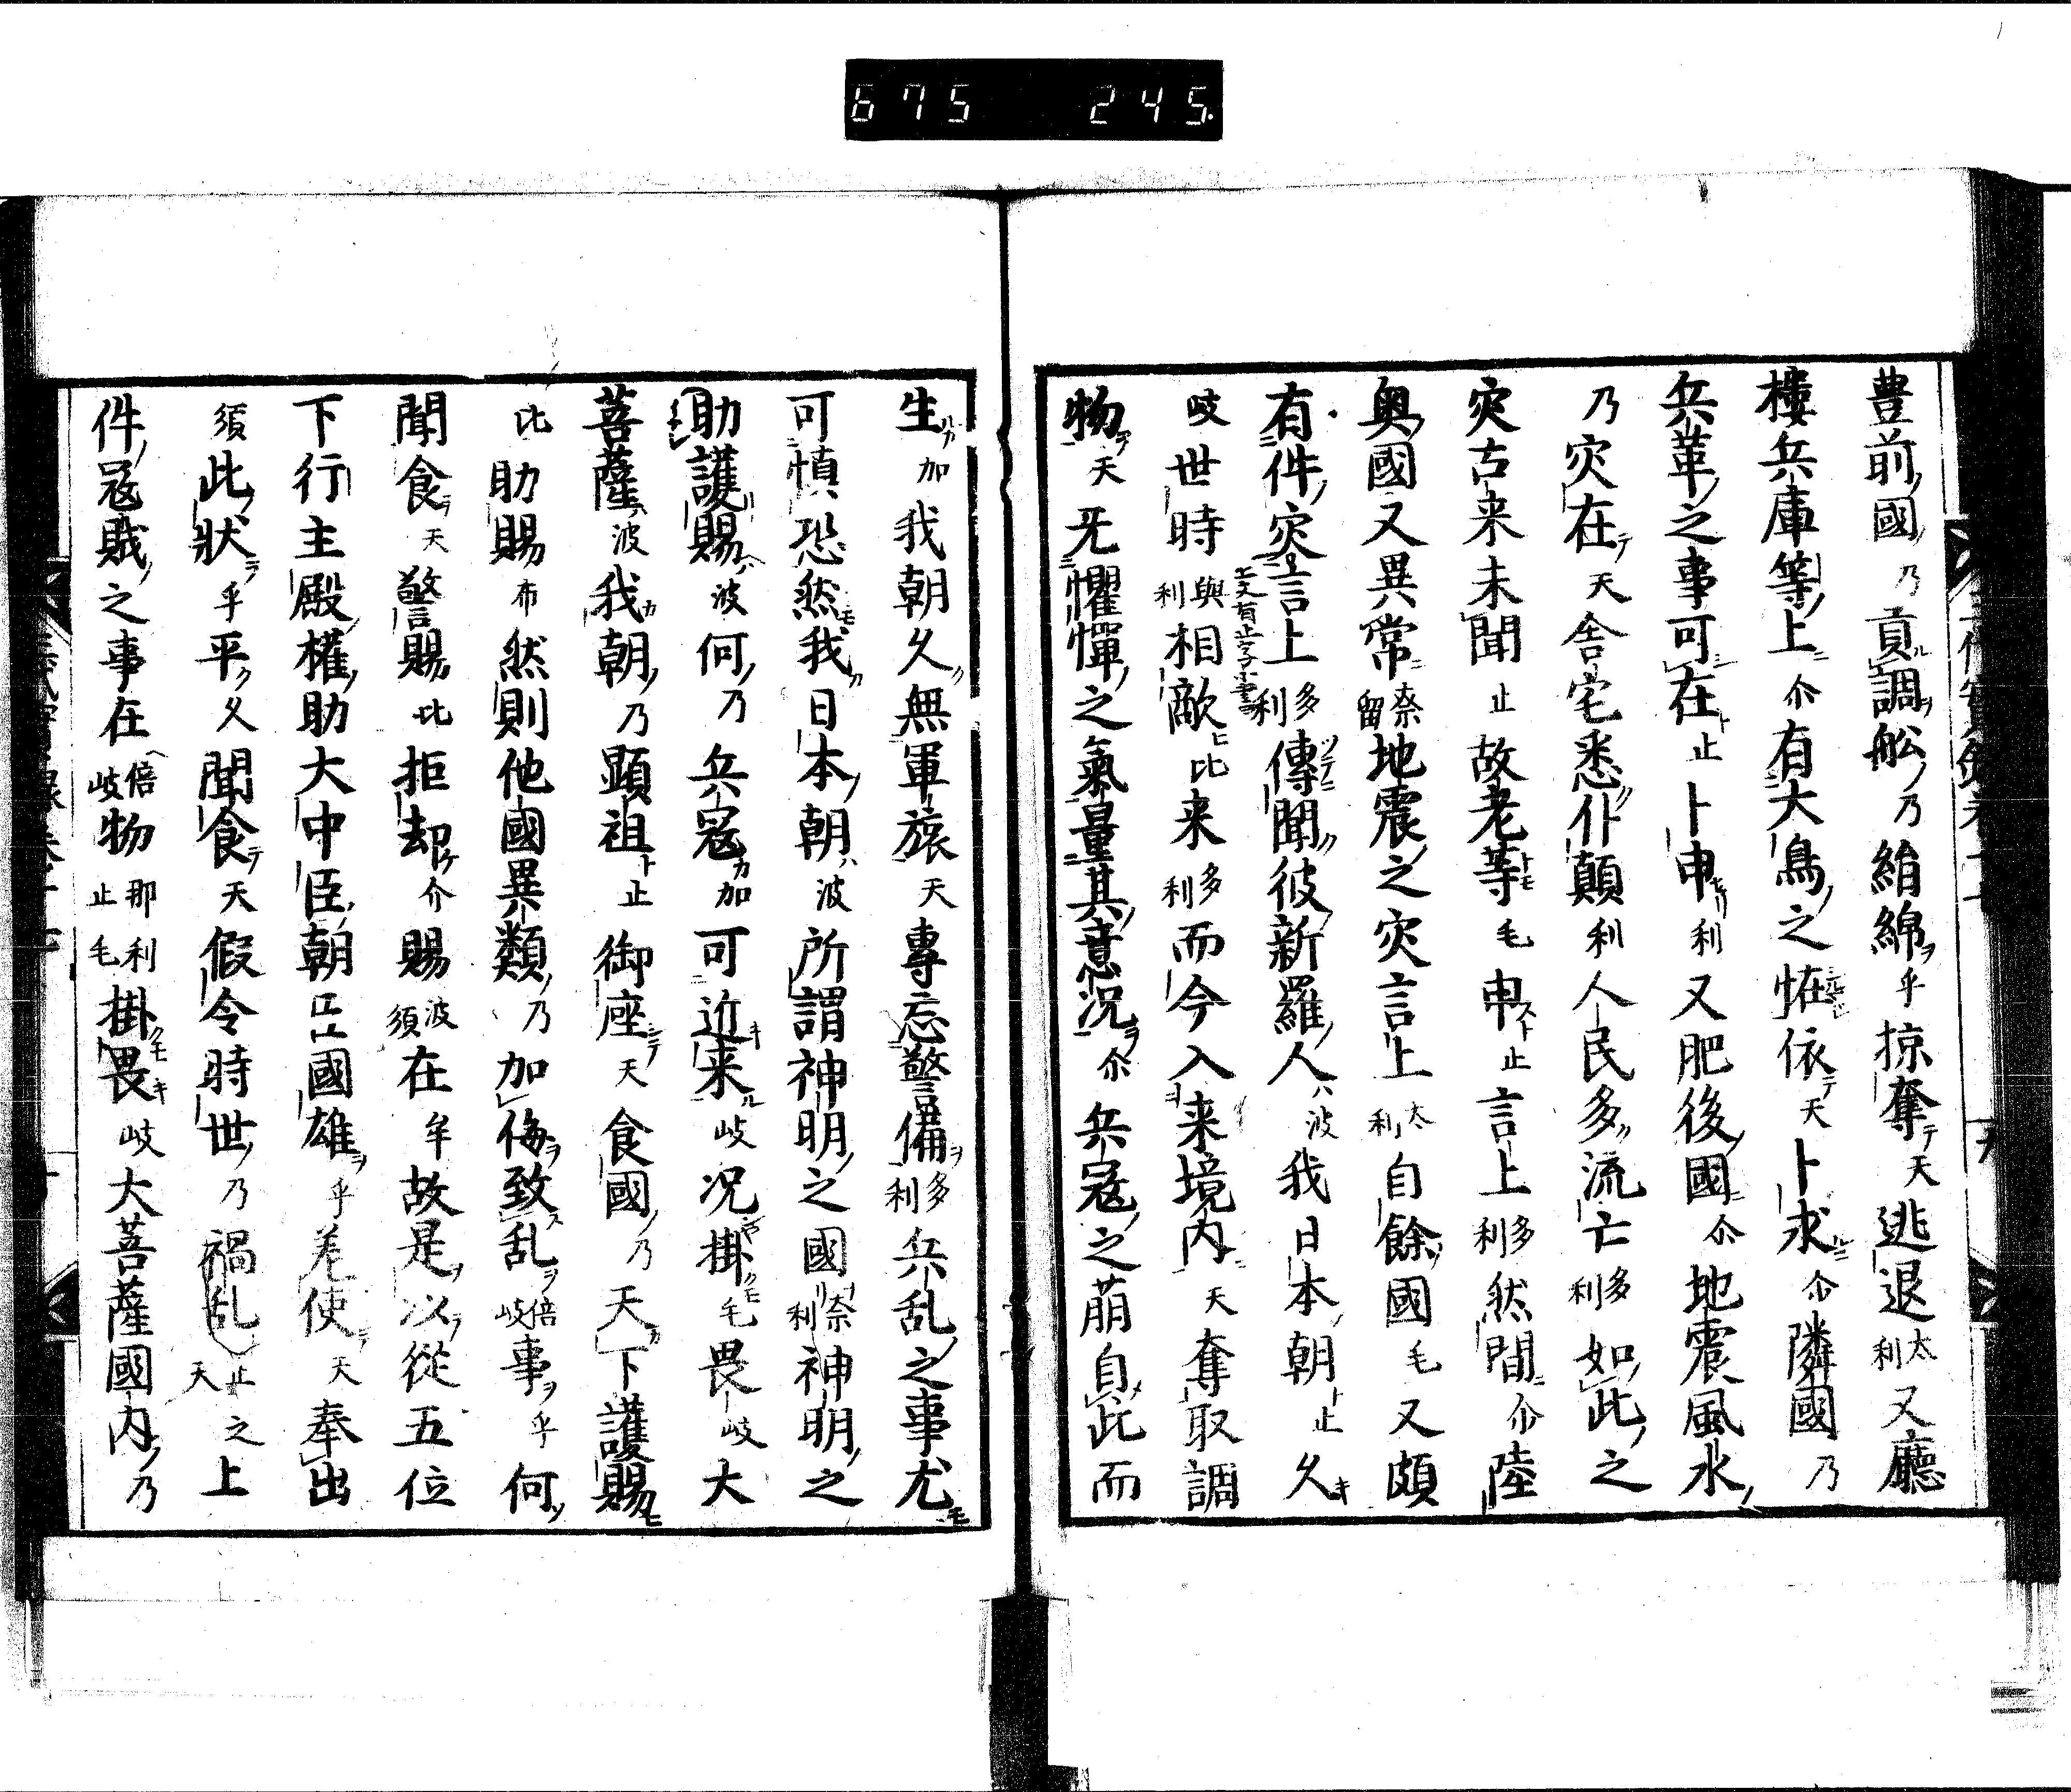 675 245
豊前國乃貢調舩乃絹綿乎掠奪天逃退太利又廳
樓兵庫等上尒有大鳥之恠依天卜求尒隣國乃
兵革之事可在止卜申利又肥後國尒地震風水
乃灾在天舎宅悉仆顛利人民多流亡多利如此之
灾古来未聞止故老等毛申止言上多利然間尒陸
奥國又異常奈留地震之灾言上太利自餘國毛又頗
有件灾言上多利傳聞彼新羅人波我日本朝止久
岐世時與利相敵比来多利而今入来境内天奪取調
物天无懼憚之氣量其意况尒兵寇之萠自此而
生加我朝久無軍旅天專忘警備多利兵乱之事尤
可慎恐然我日本朝波所謂神明之國奈利神明之
助護賜波何乃兵寇加可近来岐况掛毛畏岐大
菩薩波我朝乃顕祖止御座天食國乃天下護賜
比助賜布然則他國異類乃加侮致乱倍岐事乎何
聞食天警賜比拒却介賜波須在牟故是以從五位
下行主殿權助大中臣朝臣國雄乎差使天奉出
須此狀乎平久聞食天假令時世乃禍乱止天之上
件寇賊之事在倍岐物那利止毛掛畏岐大菩薩國内乃